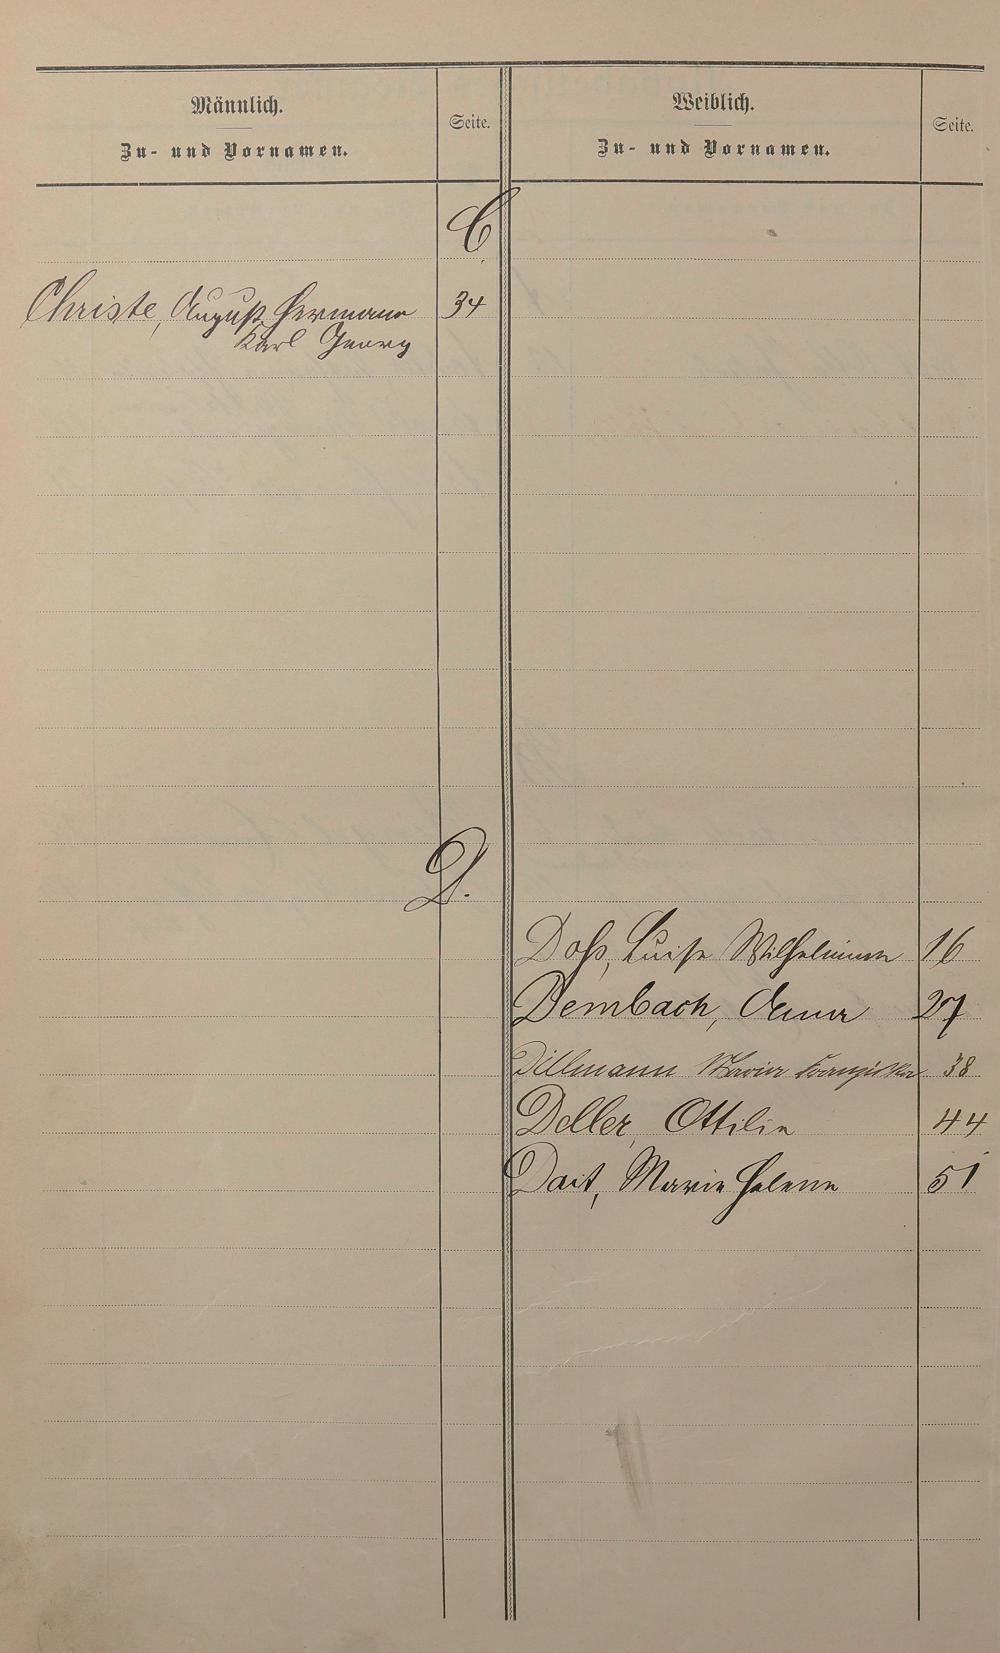 Männlich.
Zu- und Vornamen.
Seite.
Weiblich.
Zu- und Vornamen.
Seite.
C.
Christe, August Hermann 34
Karl Georg
D.
Doß, Luise Wilhelmine 16
Dembach, Anna 27
Dillmann Maria Franziska 38
Deller, Ottilie 44
Dait, Marie Helene 51